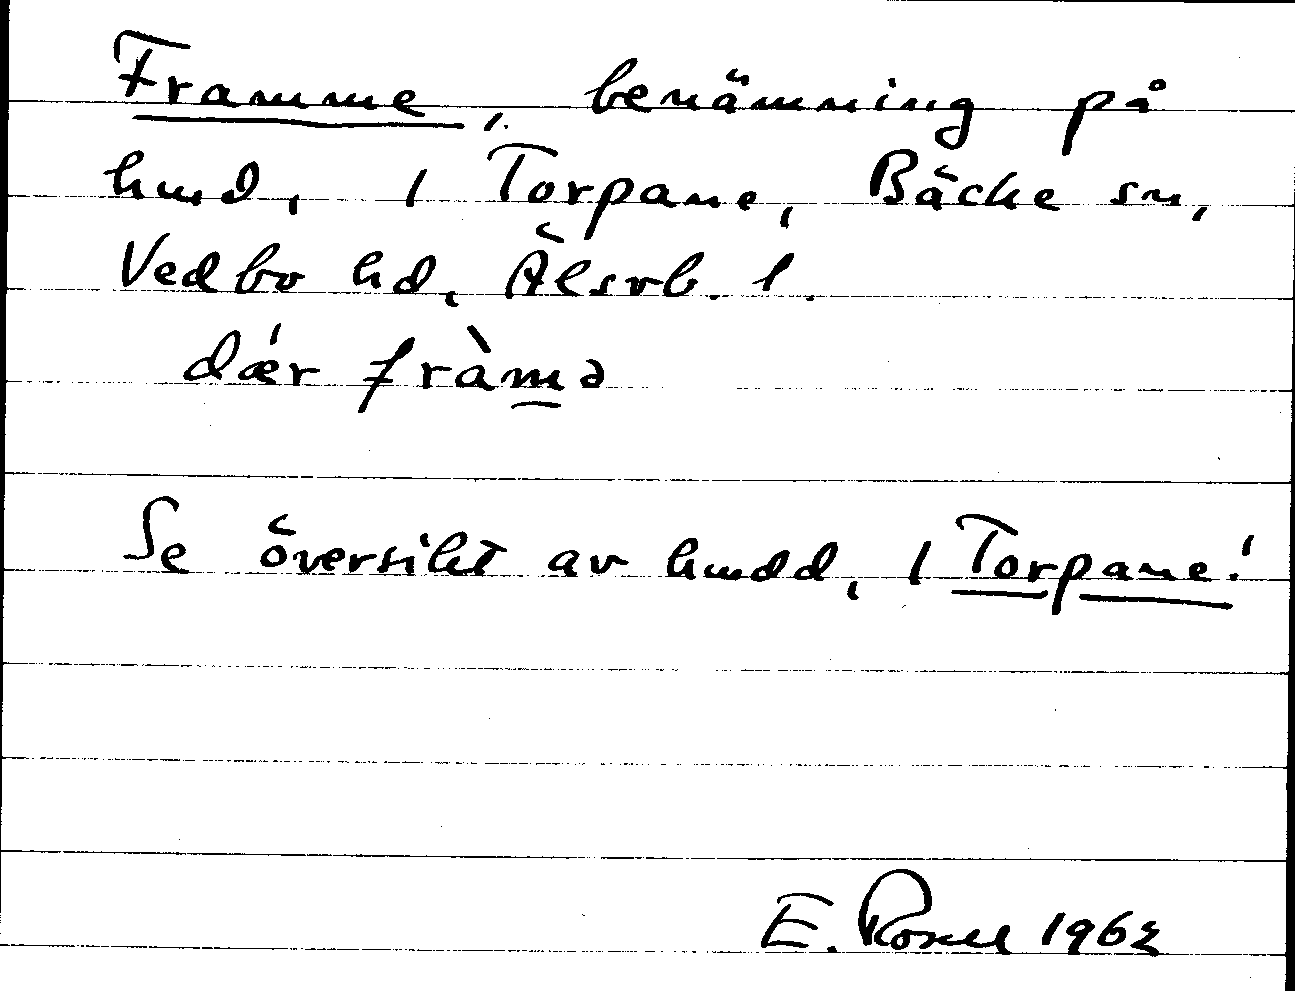 Framme, benämning på
hmd, 1 Torpane, Bäcke sn,
Vedbo hd, Älsvb. l.
dǽr fràm̲ə
Se översikt av hmdd, 1 Torpane!
E. Rosell 1962